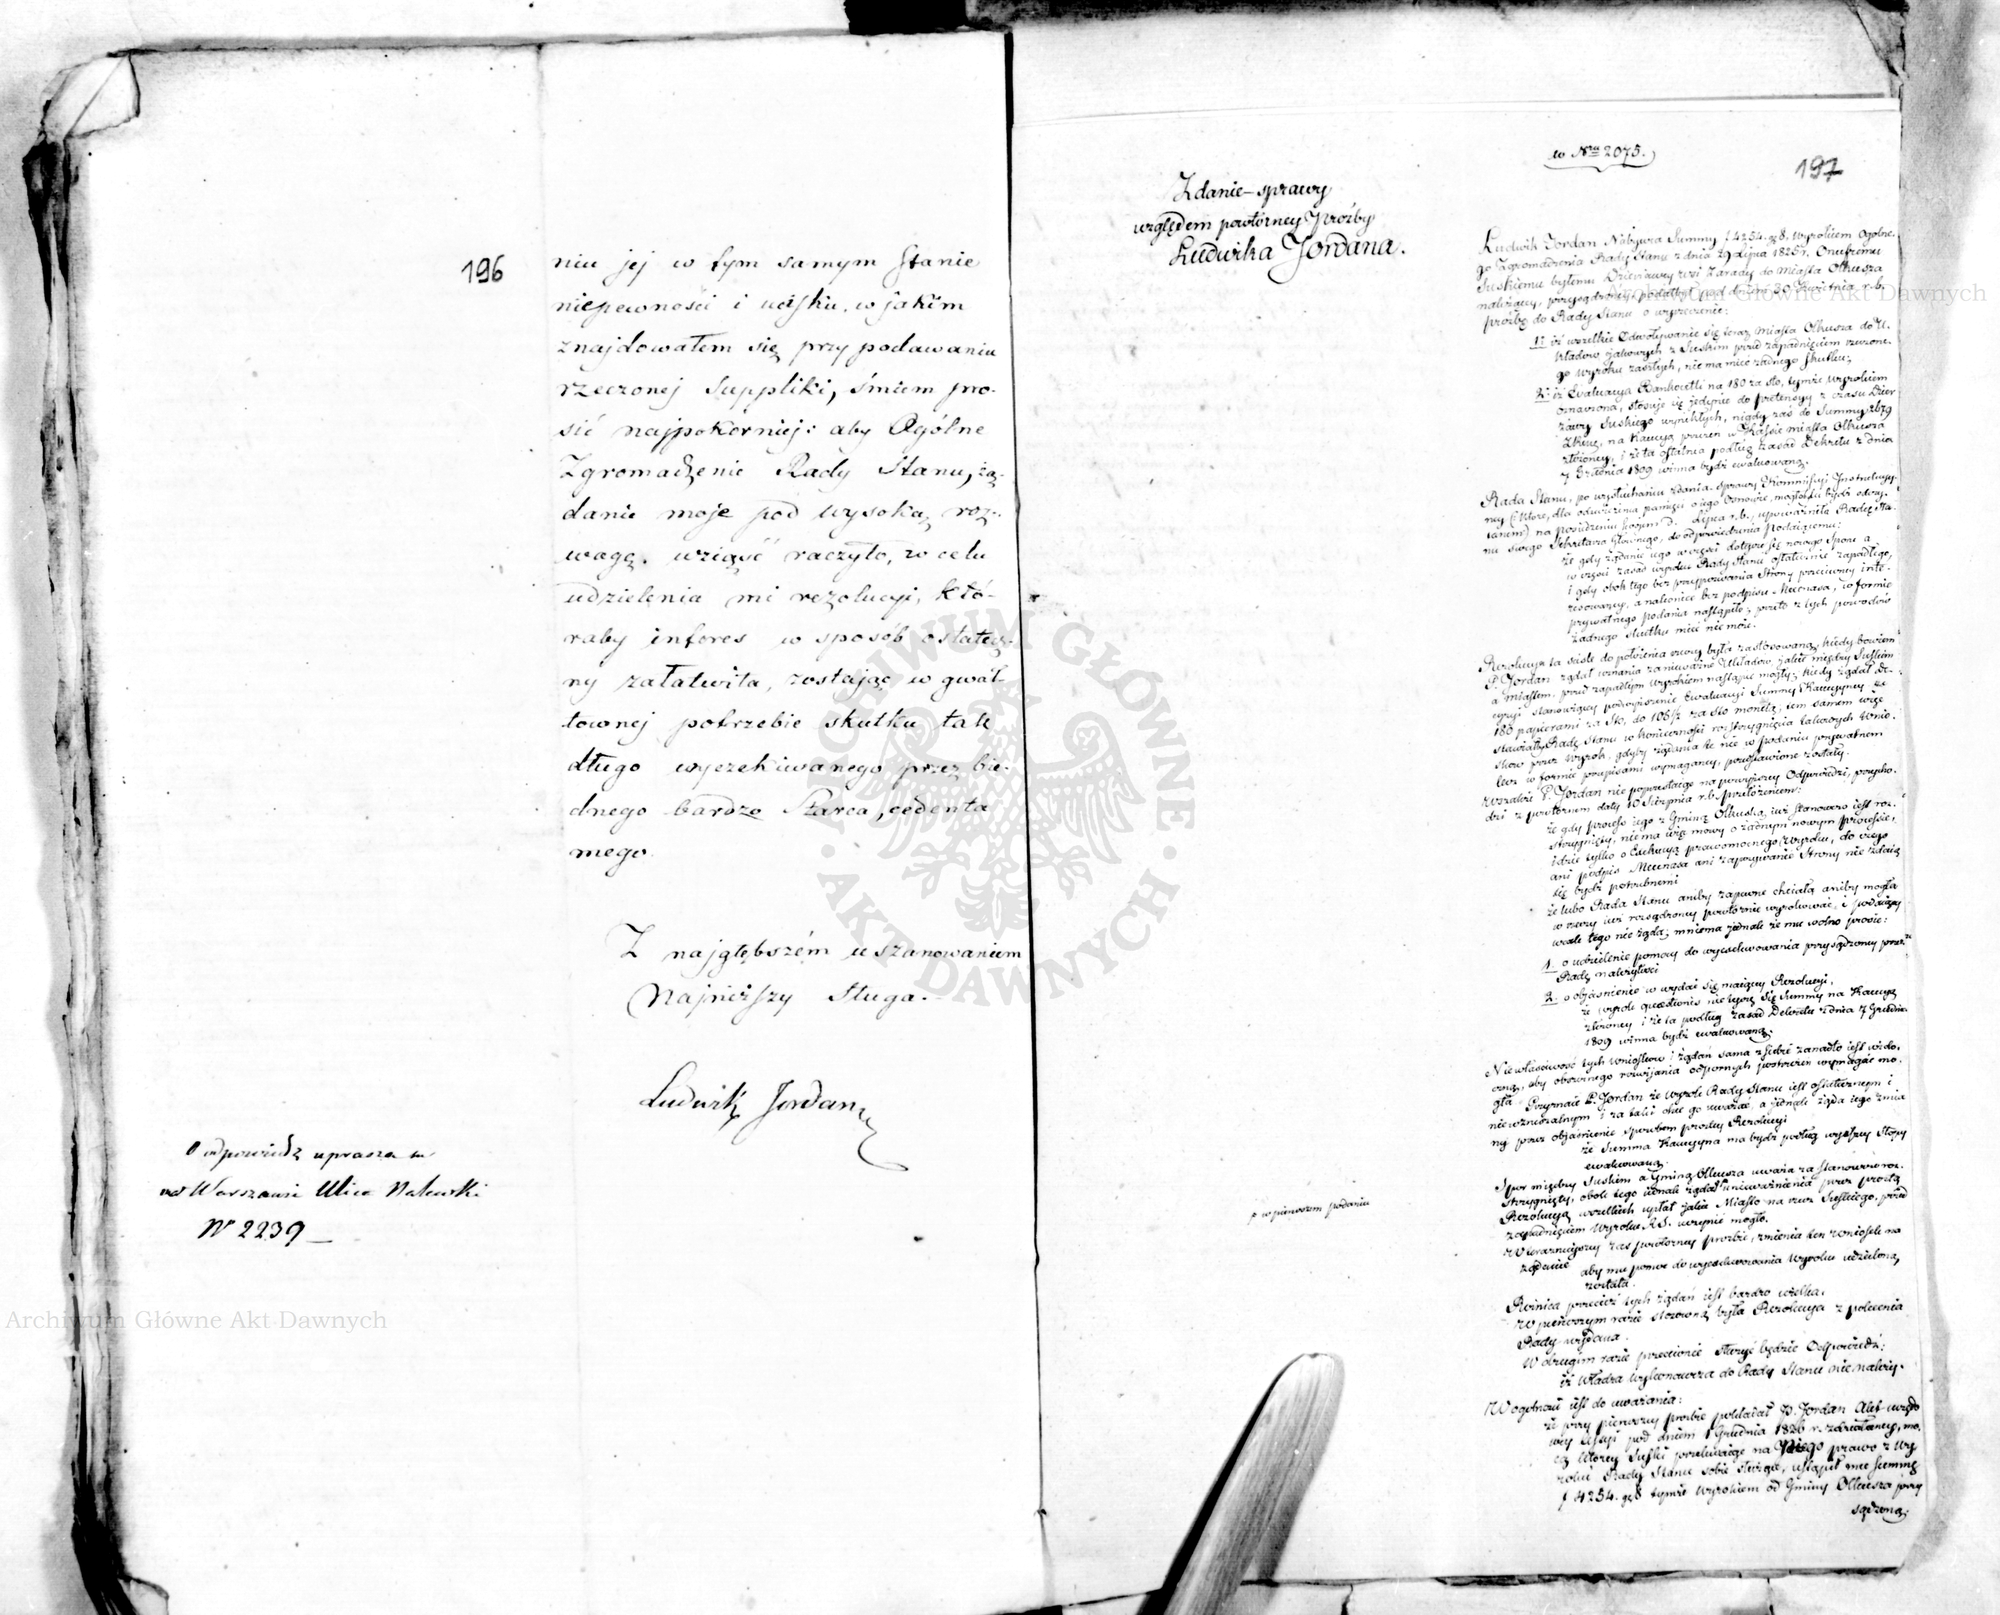 196
niu jej w tym samym Stanie
niepewności i ucisku, w jakim
znajdowałem się przy podawaniu
rzeczonej Suppliki, śmiem pro-
sić najpokorniej: aby Ogólne
Zgromadzenie Rady Stanu, żą-
danie moje pod wysoką roz-
wagę wziąść raczyło, w celu
udzielenia mi rezolucyi, któ-
raby interes w sposób ostatecz-
ny załatwiła, zostając w gwał-
townej potrzebie skutku tak
długo wyczekiwanego przez bie-
dnego bardzo Starca, cedenta
mego.
Z najgłębszém uszanowaniem
Najniższy Sługa.
Ludwik Jordan
O odpowiedz uprasza
w Warszawie Ulica Nalewki
Nr 2239
w Nru 2075.
197
Zdanie-sprawy
względem powtórney Prośby
Ludwika Jordana.
Ludwik Jordan Nabywca Summy f 4254. g 8, Wyrokiem Ogólne-
go Zgromadzenia Rady Stanu z dnia 29 Lipca 1825 r. Onufremu
Suskiemu byłemu Dzierżawcy wsi Zarady do miasta Olkusza
należącey, przysądzoney, podał pod dniem 30 Kwietnia r. b.
prośbę do Rady Stanu o wyrzeczenie:
1. iż wszelkie Odwoływanie się teraz miasta Olkusza do U-
kładów jakowych z Suskim przed zapadnięciem rzeczone-
go wyroku zaszłych, nie ma mieć żadnego skutku;
2. iż Ewaluacya Bankocetli na 180 za sto, tymże wyrokiem
oznaczona, stosuje się jedynie do pretensyy z czasu Dzier-
żawy Suskiego wynikłych, nigdy zaś do Summy 2679
na Kaucyą przezeń w Kassie miasta Olkusza
złożoney, i że ta ostatnia podług zasad Dekretu z dnia
7 Grudnia 1809 winna bydź ewaluowaną.
Rada Stanu, po wysłuchaniu zdania-sprawy Kommissyi Instrukcyy-
ney (które, dla odświeżenia pamięci o jego Osnowie, mogłoby bydź odczy-
taném) na posiedzeniu swojem d. Lipca r. b., upoważniła Radcę Sta-
nu swego Sekretarza Głównego, do odpowiedzenia Podaiącemu:
że gdy żądanie iego w części dotyczy się nowego Sporu a
w części zasad wyroku Rady Stanu ostatecznie zapadłego,
i gdy obok tego bez przypozwania Strony przeciwney inte-
ressowaney, a nakoniec bez podpisu Mecenasa, w formie
prywatnego podania nastąpiło; przeto z tych powodów
żadnego skutku mieć nie może.
Rezolucya ta ściśle do położenia rzeczy była zastosowaną, kiedy bowiem
P. Jordan żądał uznania za nieważne Układów jakie między Suskim
a miastem przed zapadłym wyrokiem nastąpić mogły; kiedy żądał de-
cyzyi stanowiącey podwyższenie Ewaluacyi Summy Kaucyyney ze
180 papierami za sto, do 105 1/2 za sto monetą, tem samem więc
stawiał Radę Stanu w konieczności rozstrzygnięcia takowych wnio-
sków przez Wyrok, gdyby żądania te nie w podaniu prywatnem
lecz w formie przepisami wymaganey, przedstawione zostały.
Wszakże P. Jordan nie poprzestaiąc na powyższey Odpowiedzi, przycho-
dzi z powtórnem daty 10 Sierpnia r. b. przełożeniem:
że gdy process iego z Gminą Olkuską iuż stanowczo iest roz-
strzygnięty, nie ma więc mowy o żadnym nowym processie,
idzie tylko o Exekucyą prawomocnego Wyroku, do czego
ani podpis Mecenasa ani zapozywanie Strony nie zdaią
się bydź potrzebnemi
że lubo Rada Stanu aniby zapewne chciała aniby mogła
w rzeczy iuż rozsądzoney powtórnie wyrokować, i podaiący
wcale tego nie żąda; mniema jednak że mu wolno prosić:
1. o udzielenie pomocy do wyexekwowania przysądzoney przez
Radę należytości
2. o objaśnienie w wydać się maiącey Rezolucyi,
że wyrok quaestionis nie tyczy się Summy na Kaucyą
złożoney i że ta podług zasad Dekretu z dnia 7 Grudnia
1809 winna bydź ewaluowaną.
Niewłaściwość tych wniosków i żądań sama z siebie zanadto iest wido-
czną, aby obszernego rozwijania odpornych postrzeżeń wymagać mo-
gła. Przyznaie P. Jordan że wyrok Rady Stanu iest ostatecznym i
niewzruszalnym i za taki chce go uważać, a jednak żąda iego zmia-
ny przez objaśnienie sposobem prostey Rezolucyi
że Summa Kaucyyna ma bydź podług wyższey Stopy
ewaluowaną.
Spór między Suskim a Gminą Olkusza uważa za stanowczo roz-
strzygnięty, obok tego iednak żądał unieważnienia przez prostą
Rezolucyą wszelkich wpłat jakie Miasto na rzecz Suskiego, przed
zapadnięciem Wyroku R. S. uczynić mogło.
p w pierwszem podaniu
W teraźnieyszey zaś powtórney prośbie, zmienia ten wniosek na
żądanie
aby mu pomoc do wyexekwowania Wyroku udzieloną
została.
Różnica przecież tych żądań iest bardzo wielka.
W pierwszym razie stosowną była Rezolucya z polecenia
Rady wydana.
W drugim razie przeciwnie służyć będzie Odpowiedź:
iż Władza wykonawcza do Rady Stanu nie należy.
W ogólności iest do uważania:
że przy pierwszey prośbie pokładał P. Jordan Akt urzędo-
wy Cessyi pod dniem 1 Grudnia 1826 r. zdziałaney, mo-
cą którey Suski przelewaiąc na Niego prawo z Wy-
roku Rady Stanu sobie służące, ustąpił mu summę
f 4254. g 8 tymże Wyrokiem od Gminy Olkusza przy-
sądzoną.
Archiwum Główne Akt Dawnych
Archiwum Główne Akt Dawnych
ARCHIWUM GŁÓWNE · AKT DAWNYCH ·